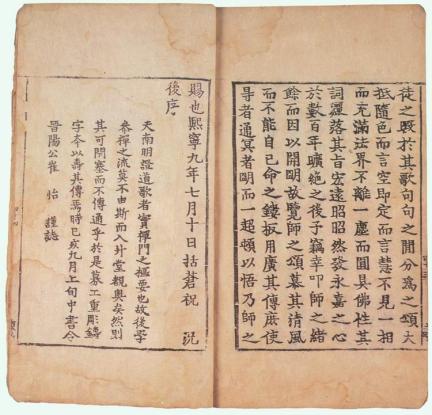 徒之啟於其歌句句之間分為之頌大
抵隨色而言空即定而言慧不見一相
而充滿法界不離一塵而圓具佛性其
詞灑落其旨宏遠昭昭然發永嘉之心
於數百年曠絕之後予竊幸叩師之緒
餘而因以開明故覽師之頌慕其清風
而不能自已命之鏤板用廣其傳庶使
尋者通冥者明而一起頓以悟乃師之
賜也熙寧九年七月十日括蒼祝 況
後序
夫南明證道歌者實禪門之樞要也故後學
參禪之流莫不由斯而入升堂覩奧矣然則
其可閉塞而不傳通乎於是募工重彫鑄
字本以壽其傳焉時己亥九月上旬中書令
晉陽公崔 怡 謹誌